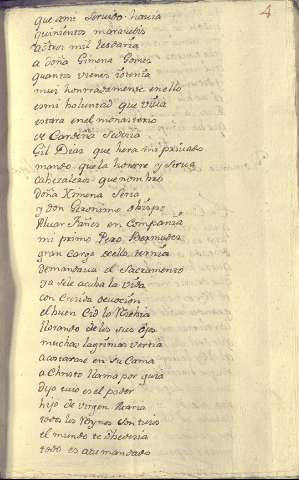 4
que ami servido havia
quinientos maravedis
a otros mil les daria
a doña Gimena Gomez
quantos vienes
mui honrradamente en ello
es mi voluntad que viva
estara en el monasterio
de Cardeña
Gil Diaz que hera mi privado
mando que la honrre y sirva
cavalleros que nombro
doña Ximena Seria
y don Geronimo obispo
Alvar Fañez en Compañia
mi primo Pero Bermudez
gran Carga dello ternia
demandava el Sacramento
ya sele acaba la vida
con devocion
el buen Cid lo Reçivia
llorando de los sus ojos
muchas lagrimas vertia
acostarase en su Cama
a Christo llama por guia
dijo tuio es el poder
hijo de virgen Maria
todos los Reynos son tuios
el mundo te obedecia
todo es atu mandado